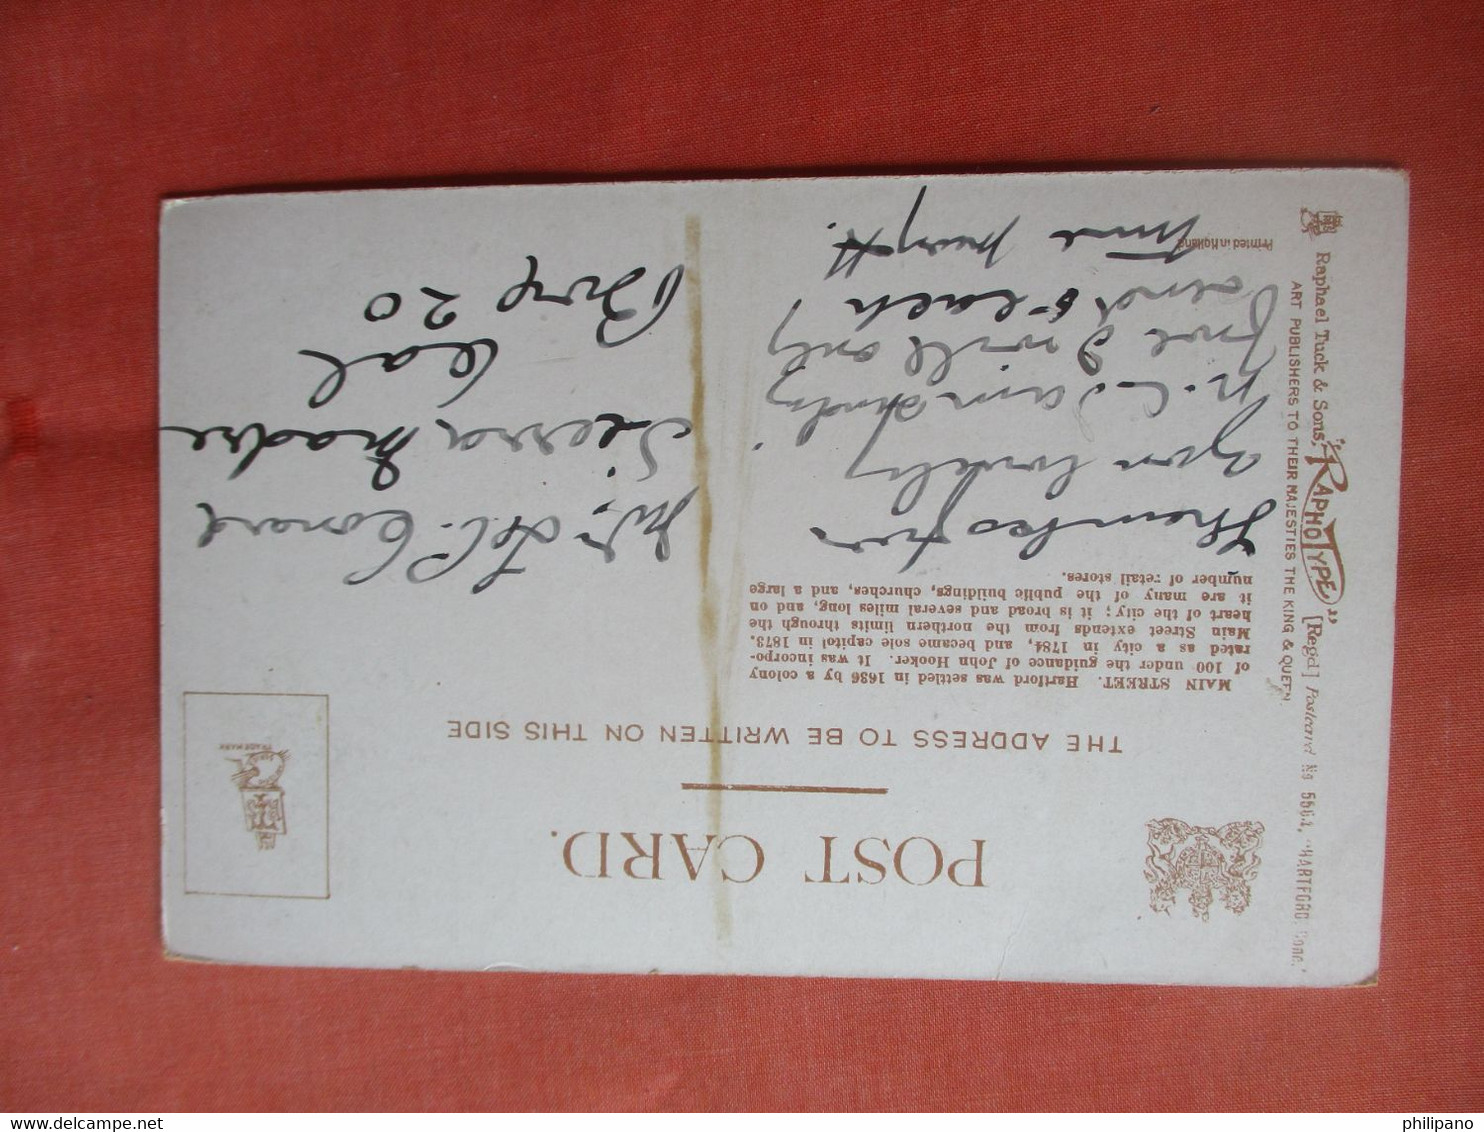 POST CARD.
THE ADDRESS TO BE WRITTEN ON THIS SIDE
TRADE MARK
MAIN STREET. Hartford was settled in 1636 by a colony
of 100 under the guidance of John Hooker. It was incorpo-
rated as a city in 1784, and became sole capitol in 1873.
Main Street extends from the northern limits through the
heart of the city; it is broad and several miles long, and on
it are many of the public buildings, churches, and a large
number of retail stores.
Thanks for
your lovely
P.C. I am
I will only
send 5 each,
Mr. H.C. Conard
Sierra Madre
Cal
Box 20
Raphael Tuck & Sons' "RAPHOTYPE" [Regd] Postcard No 5564, "HARTFORD, Conn."
ART PUBLISHERS TO THEIR MAJESTIES THE KING & QUEEN
Printed in Holland
philipano